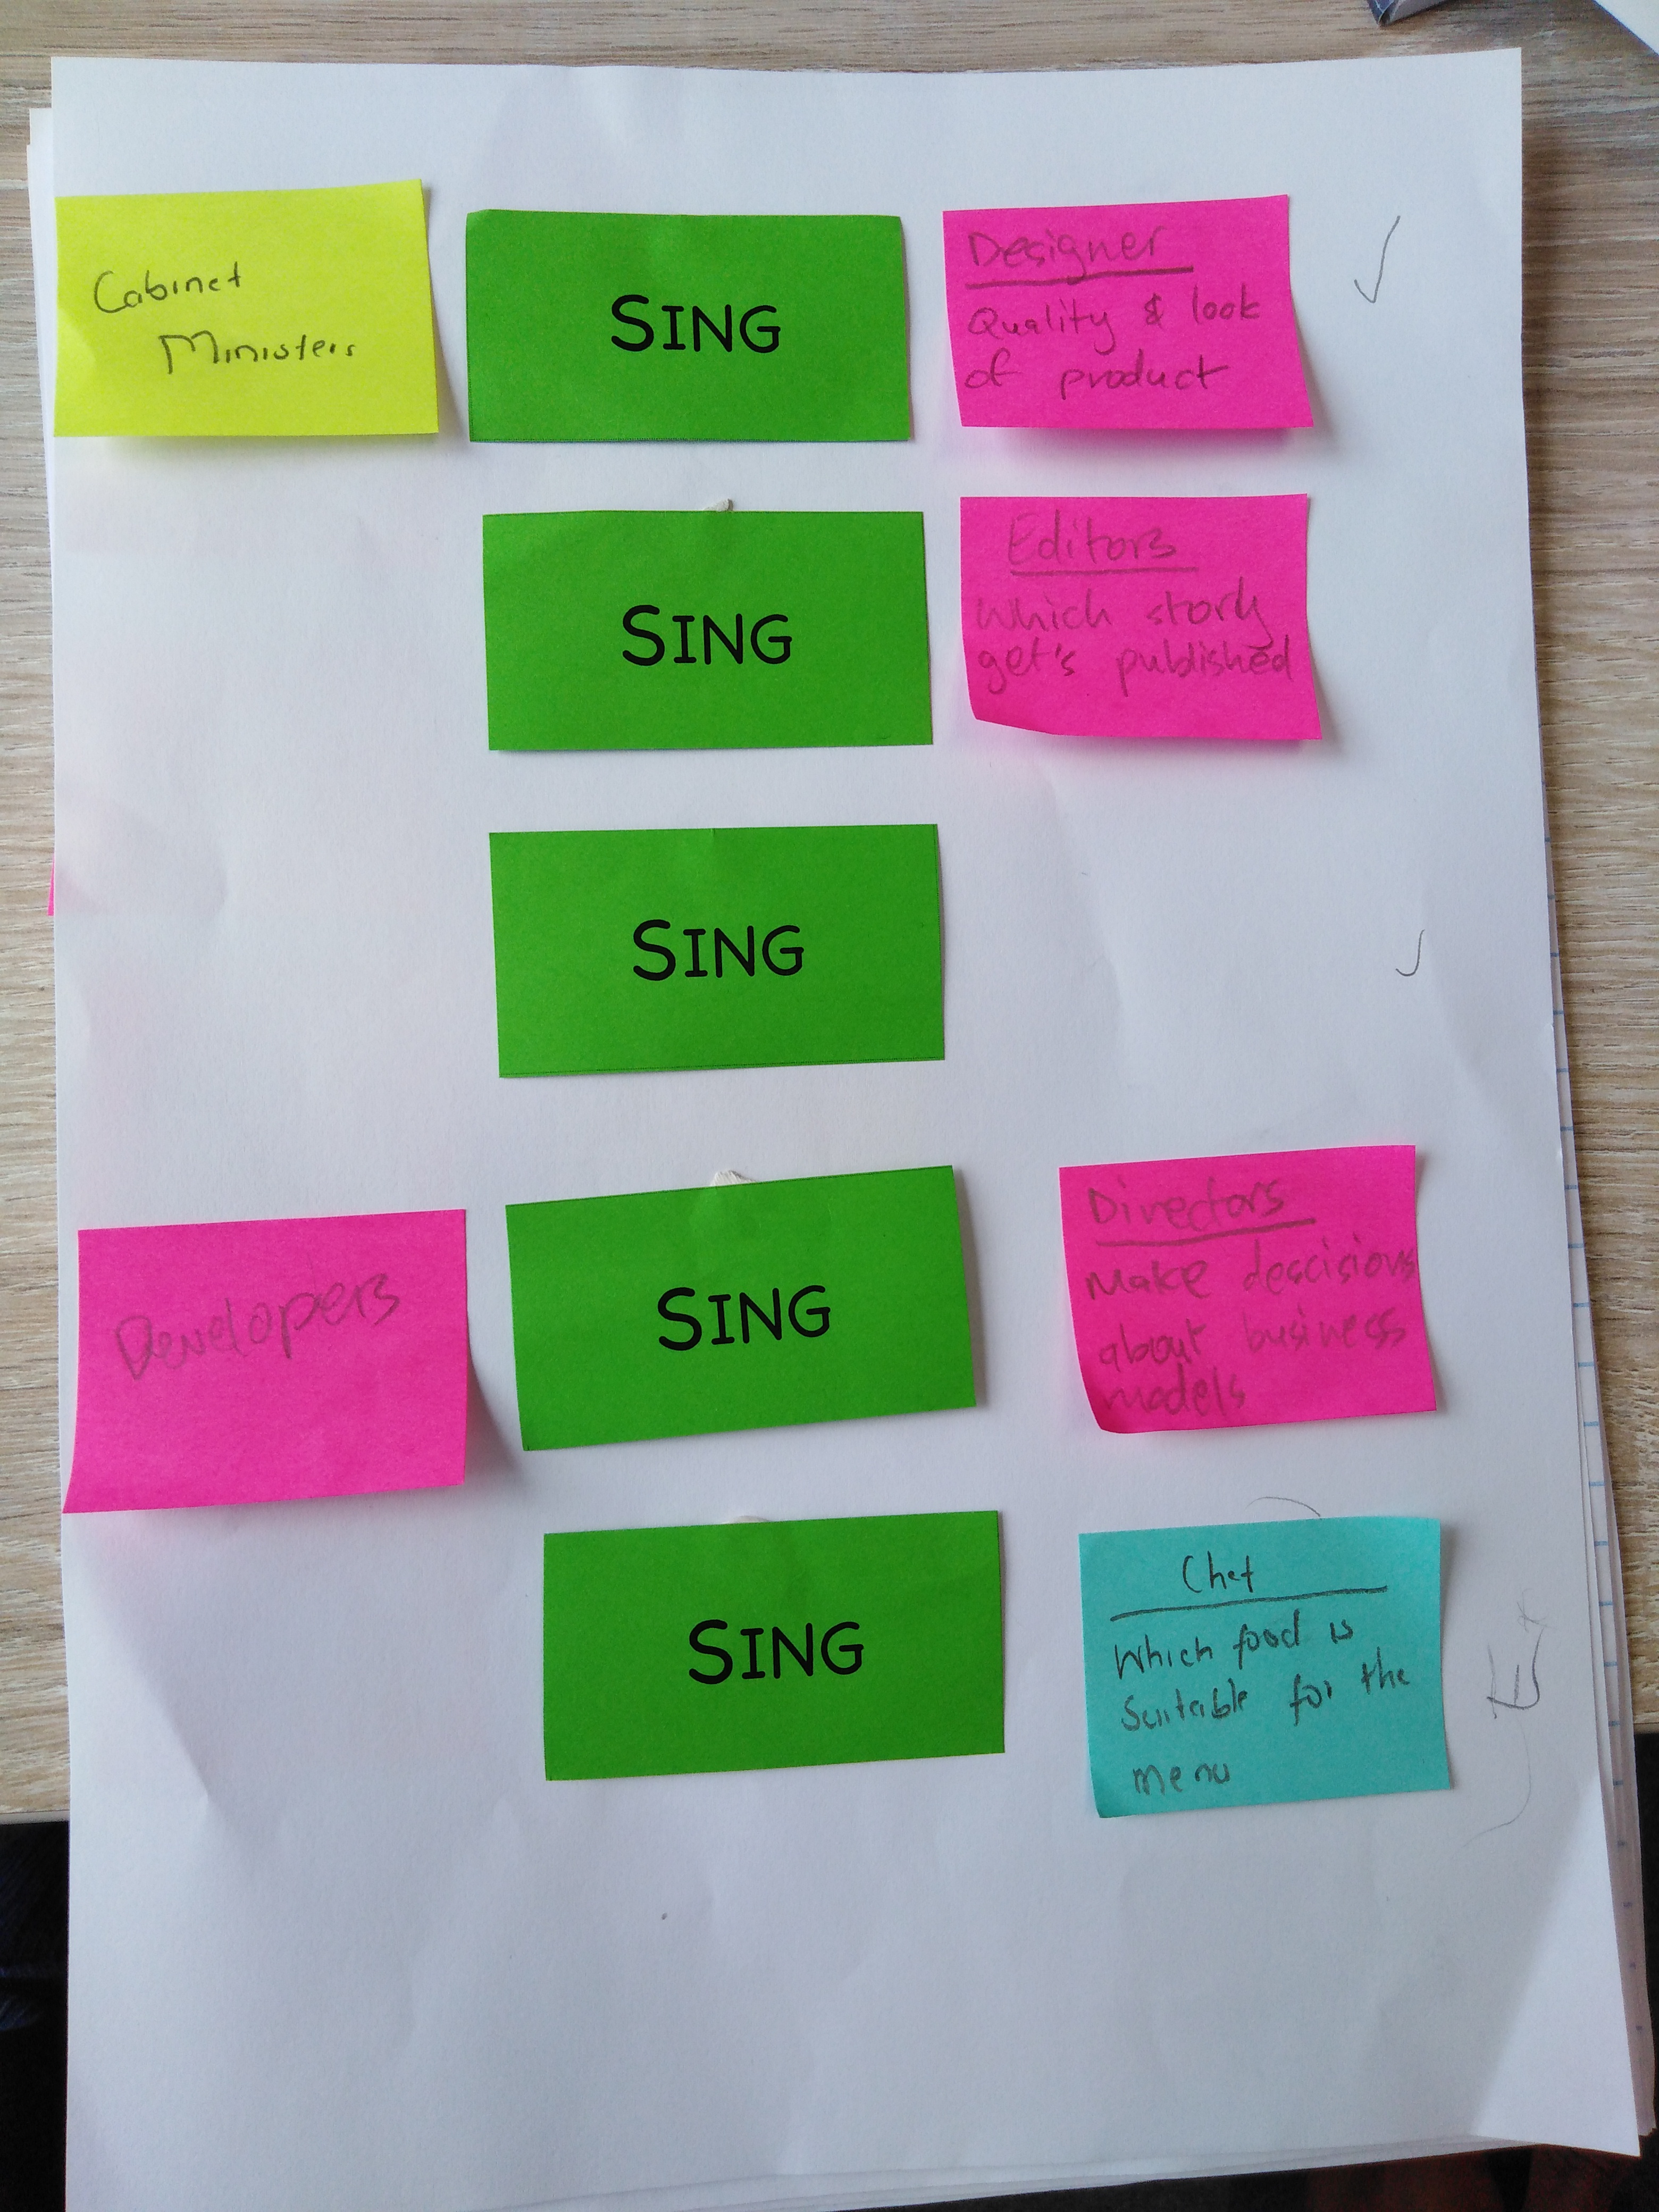 Cabinet
Ministers
SING
Designer
Quality & look
of product
SING
Editors
Which story
get's published
SING
Developers
SING
Directors
Make descisions
about business
models
SING
Chef
Which food is
Suitable for the
menu